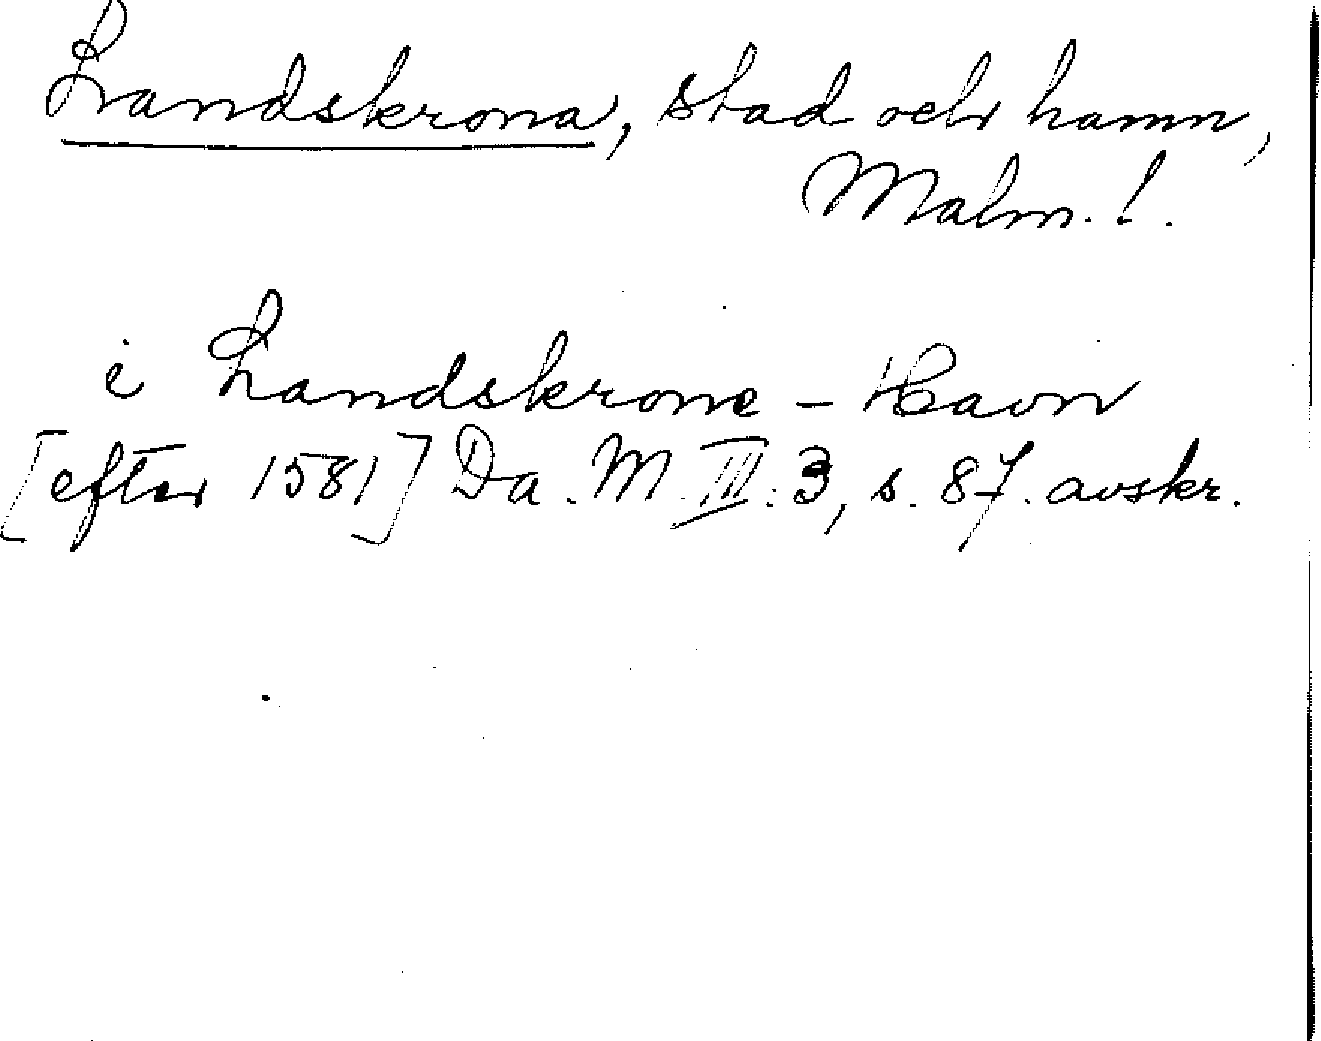 Landskrona, stad och hamn,
Malm. l.
i Landskrone - Havn
[efter 1581] Da. M. III. 3, s. 87. avskr.